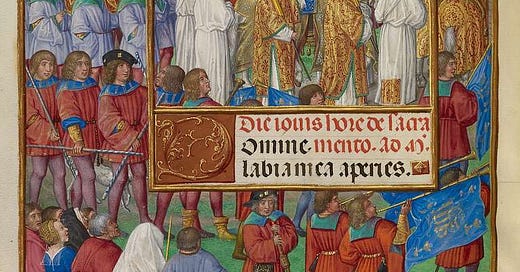 Die iouis hore de sacra
Domine mento. ad M.
labia mea aperies.